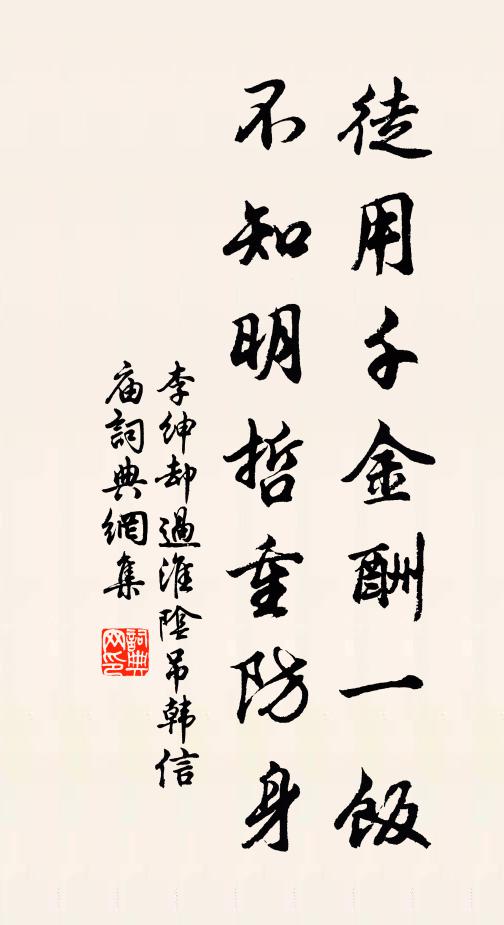 徒用千金酬一飯
不知明哲重防身
李紳却過淮陰吊韩信
庙詞典網集
詞典
网印